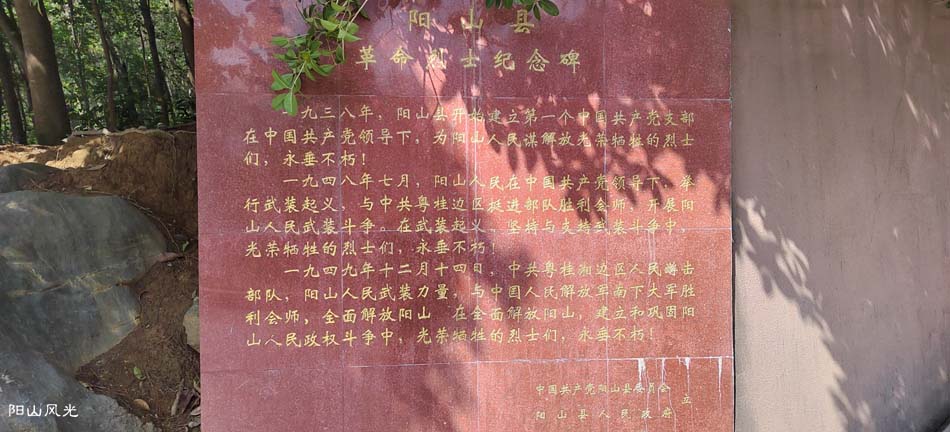 阳山县
革命烈士纪念碑
一九三八年，阳山县开始建立第一个中国共产党支部
在中国共产党领导下，为阳山人民谋解放光荣牺牲的烈士
们，永垂不朽！
一九四八年七月，阳山人民在中国共产党领导下，举
行武装起义，与中共粤桂边区挺进部队胜利会师，开展阳
山人民武装斗争。在武装起义、坚持与支持武装斗争中，
光荣牺牲的烈士们，永垂不朽！
一九四九年十二月十四日，中共粤桂湘边区人民游击
部队，阳山人民武装力量，与中国人民解放军南下大军胜
利会师，全面解放阳山 在全面解放阳山，建立和巩固阳
山人民政权斗争中，光荣牺牲的烈士们，永垂不朽！
中国共产党阳山县委员会
阳山县人民政府 立
阳山风光